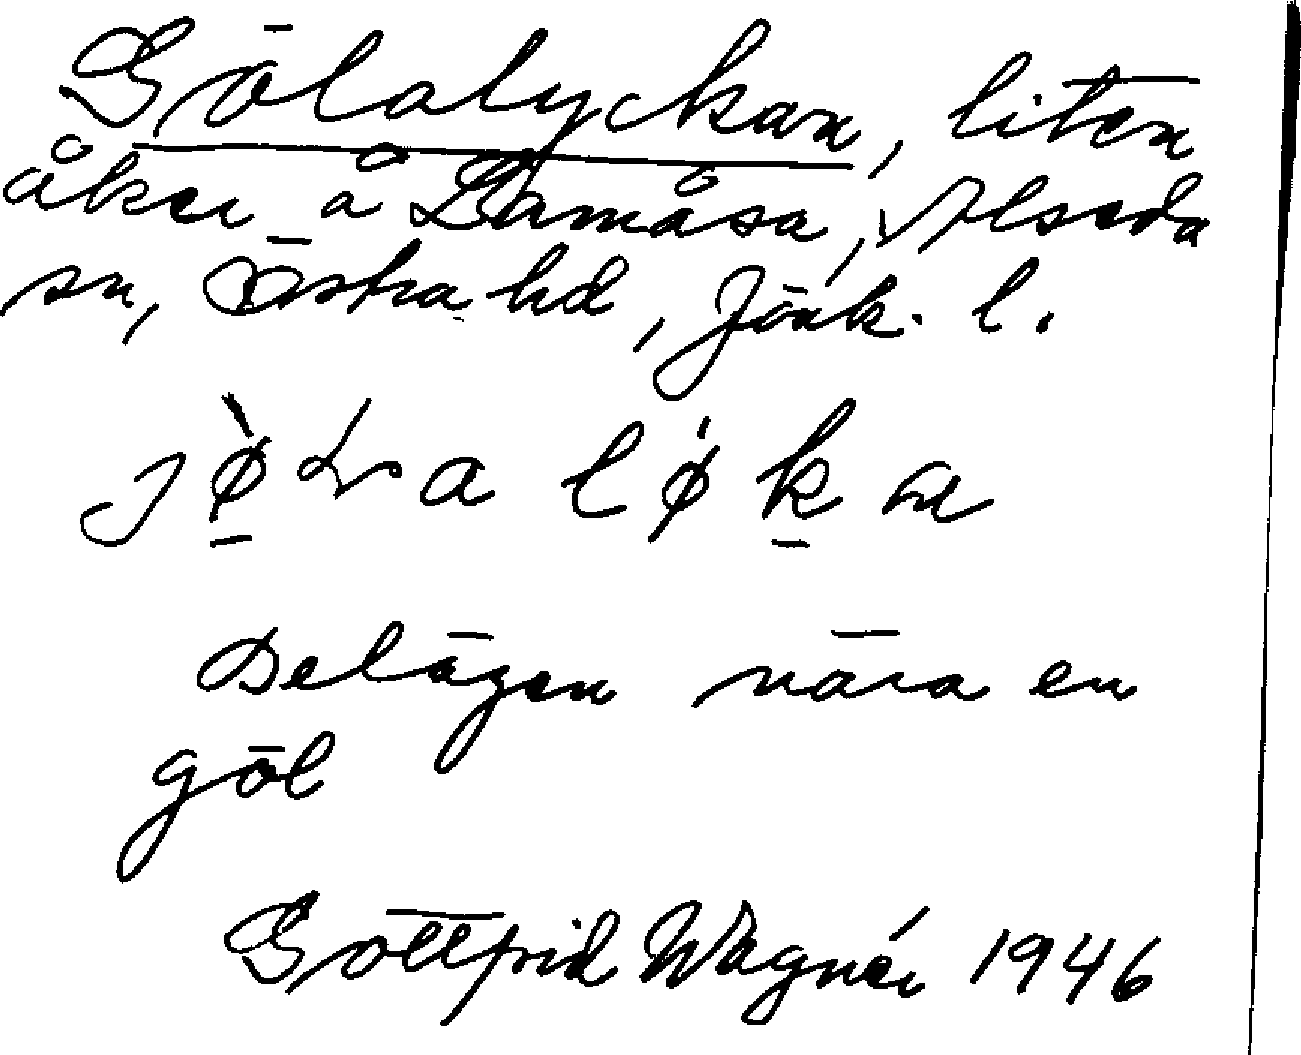 Gölalyckan, liten
åker å Lamåsa, Alseda
sn, Östra hd, Jönk. l.
Belägen nära en
göl
Gottfrid Wagnér 1946